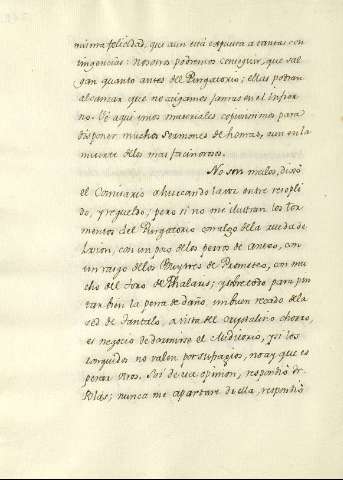 misma felicidad, que aun está expuesta a tantas con
tingencias: nosotros podremos conseguir, que sal
gan quanto antes del Purgatorio; ellas podran
alcanzar que no caigamos jamas en el Infier
no. Vé aqui unos materiales copiosisimos para
disponer muchos sermones de honras, aun en la
muerte de los mas facinorosos.
No son malos, dixo
el Comisario ahuecando la voz entre resopli
do, y regueldo; pero si no me ilustran los tor
mentos del Purgatorio con algo de la rueda de
Ixion, con un poco de los perros de Anteo, con
un rasgo de los Buytres de Prometeo, con mu
cho del toro de Phalaris; y sobre todo para pin
tar bien la pena de daño, un buen recado de la
sed de Tantalo, a vista del crystalino chorro,
es negocio de dormirse el Auditorio, y si los
ronquidos no valen por sufragios, no ay que es
perar otros. Soi de esa opinion, respondió Fr.
Blas; nunca me apartare de ella, respondió